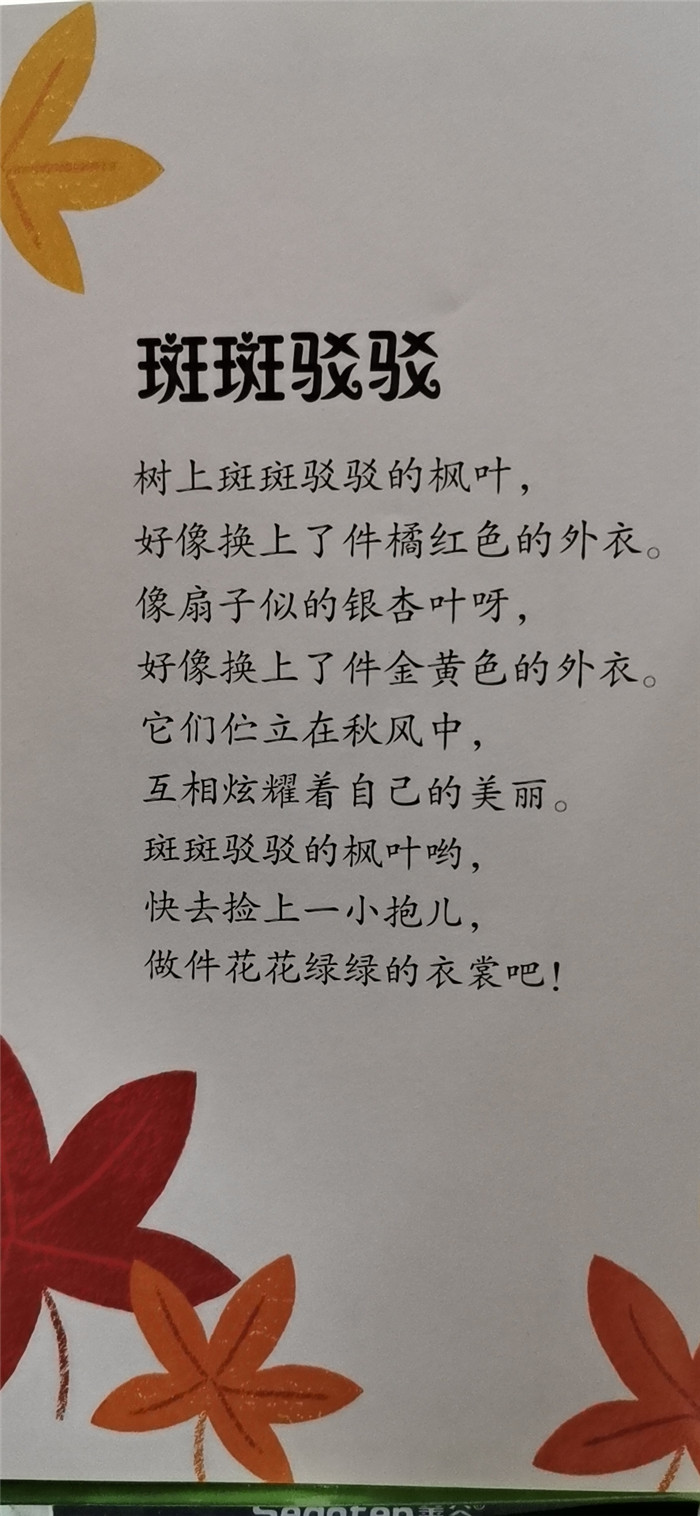 斑斑驳驳
树上斑斑驳驳的枫叶，
好像换上了件橘红色的外衣。
像扇子似的银杏叶呀，
好像换上了件金黄色的外衣。
它们伫立在秋风中，
互相炫耀着自己的美丽。
斑斑驳驳的枫叶哟，
快去捡上一小抱儿，
做件花花绿绿的衣裳吧！